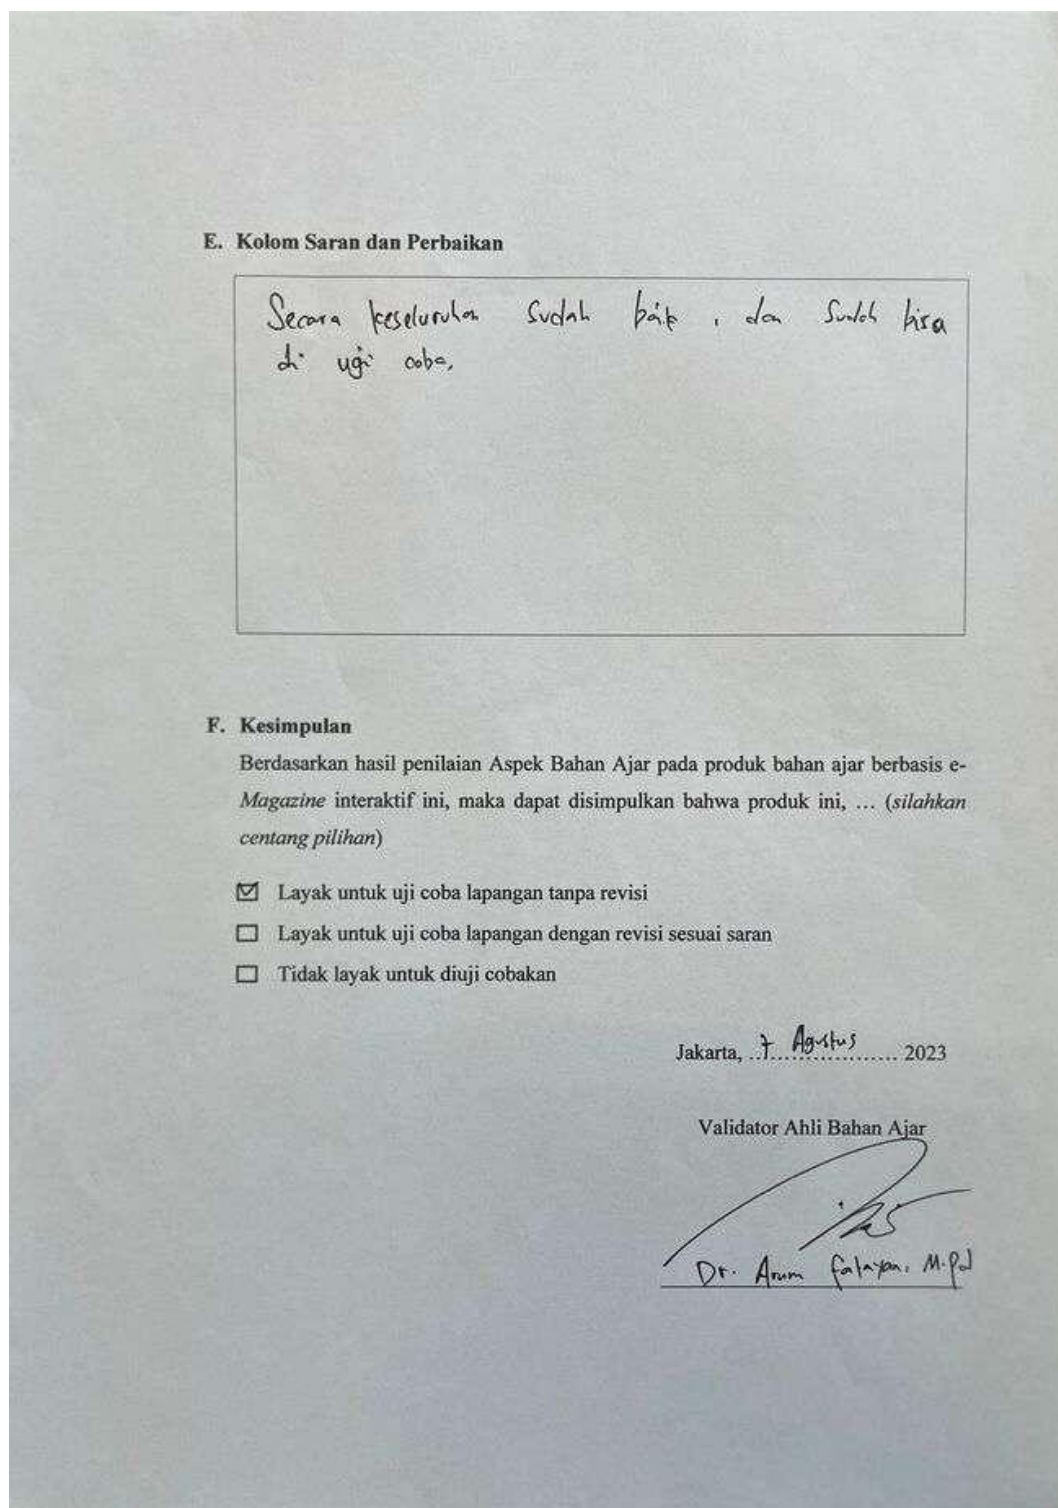 E. Kolom Saran dan Perbaikan
Secara keseluruhan sudah baik, dan sudah bisa
di uji coba.
F. Kesimpulan
Berdasarkan hasil penilaian Aspek Bahan Ajar pada produk bahan ajar berbasis e-
Magazine interaktif ini, maka dapat disimpulkan bahwa produk ini, ... (silahkan
centang pilihan)
☑ Layak untuk uji coba lapangan tanpa revisi
☐ Layak untuk uji coba lapangan dengan revisi sesuai saran
☐ Tidak layak untuk diuji cobakan
Jakarta, 7 Agustus 2023
Validator Ahli Bahan Ajar
Dr. Arum Fatayan, M.Pd